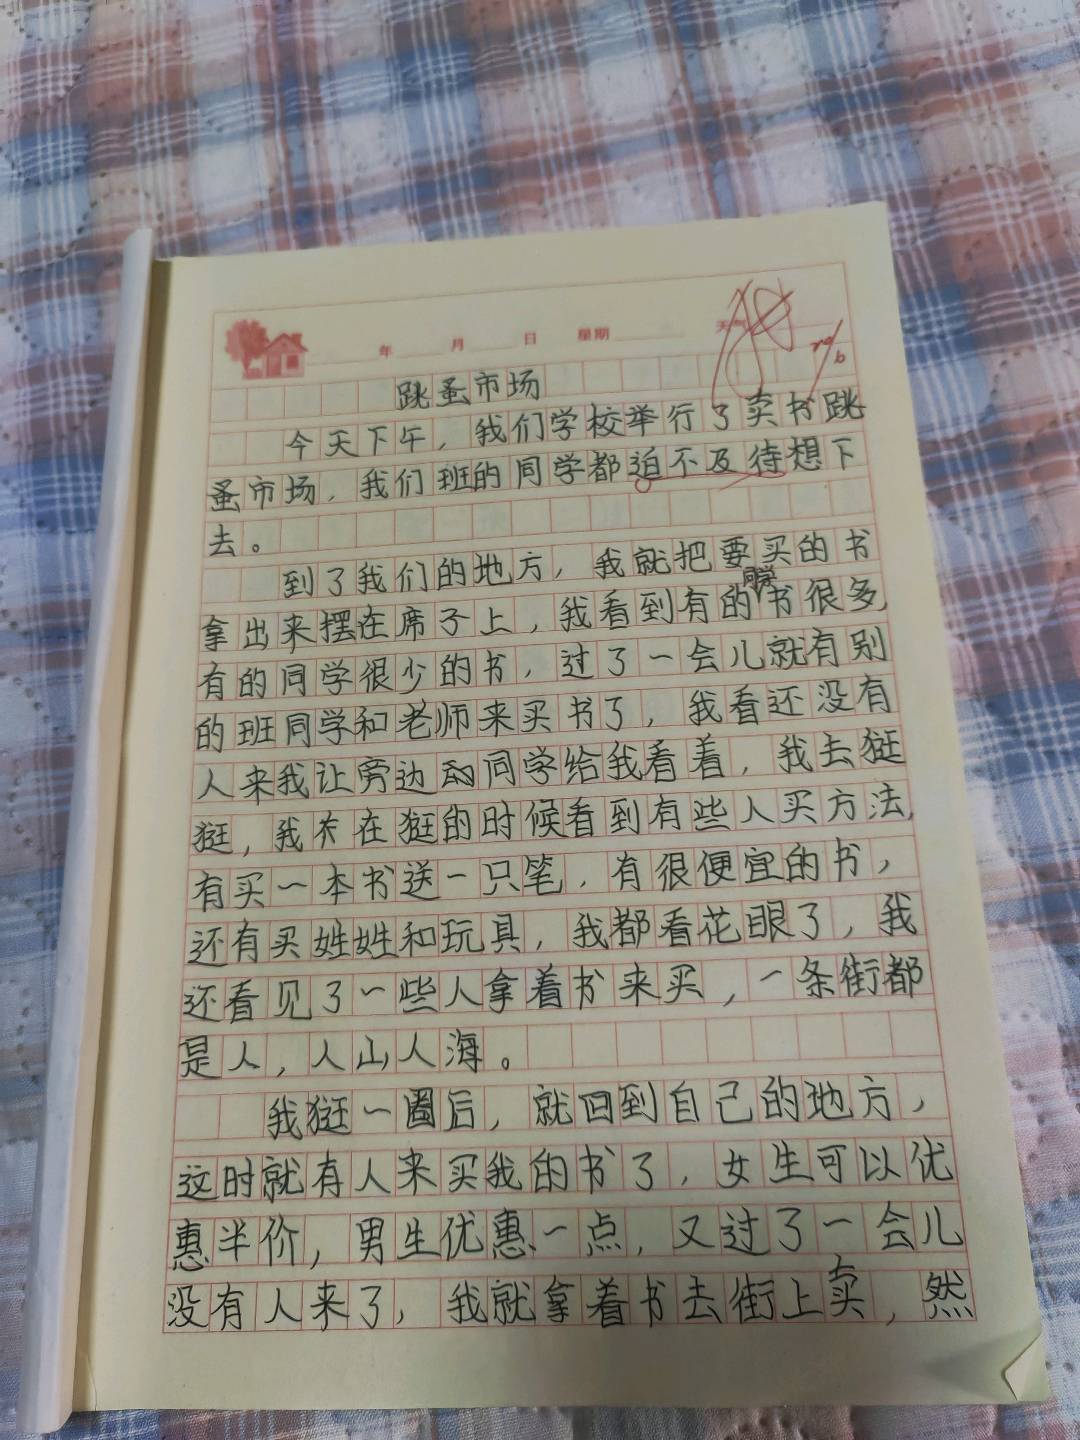 年 月 日 星期 天气
跳蚤市场
今天下午，我们学校举行了卖书跳
蚤市场，我们班的同学都迫不及待想下
去。
到了我们的地方，我就把要买的书
同学
拿出来摆在席子上，我看到有的书很多，
有的同学很少的书，过了一会儿就有别
的班同学和老师来买书了，我看还没有
人来我让旁边的同学给我看着，我去挺
挺，我在挺的时候看到有些人买方法，
有买一本书送一只笔，有很便宜的书，
还有买姓姓和玩具，我都看花眼了，我
还看见了一些人拿着书来买，一条街都
是人，人山人海。
我挺一圈后，就回到自己的地方，
这时就有人来买我的书了，女生可以优
惠半价，男生优惠一点，又过了一会儿
没有人来了，我就拿着书去街上卖，然